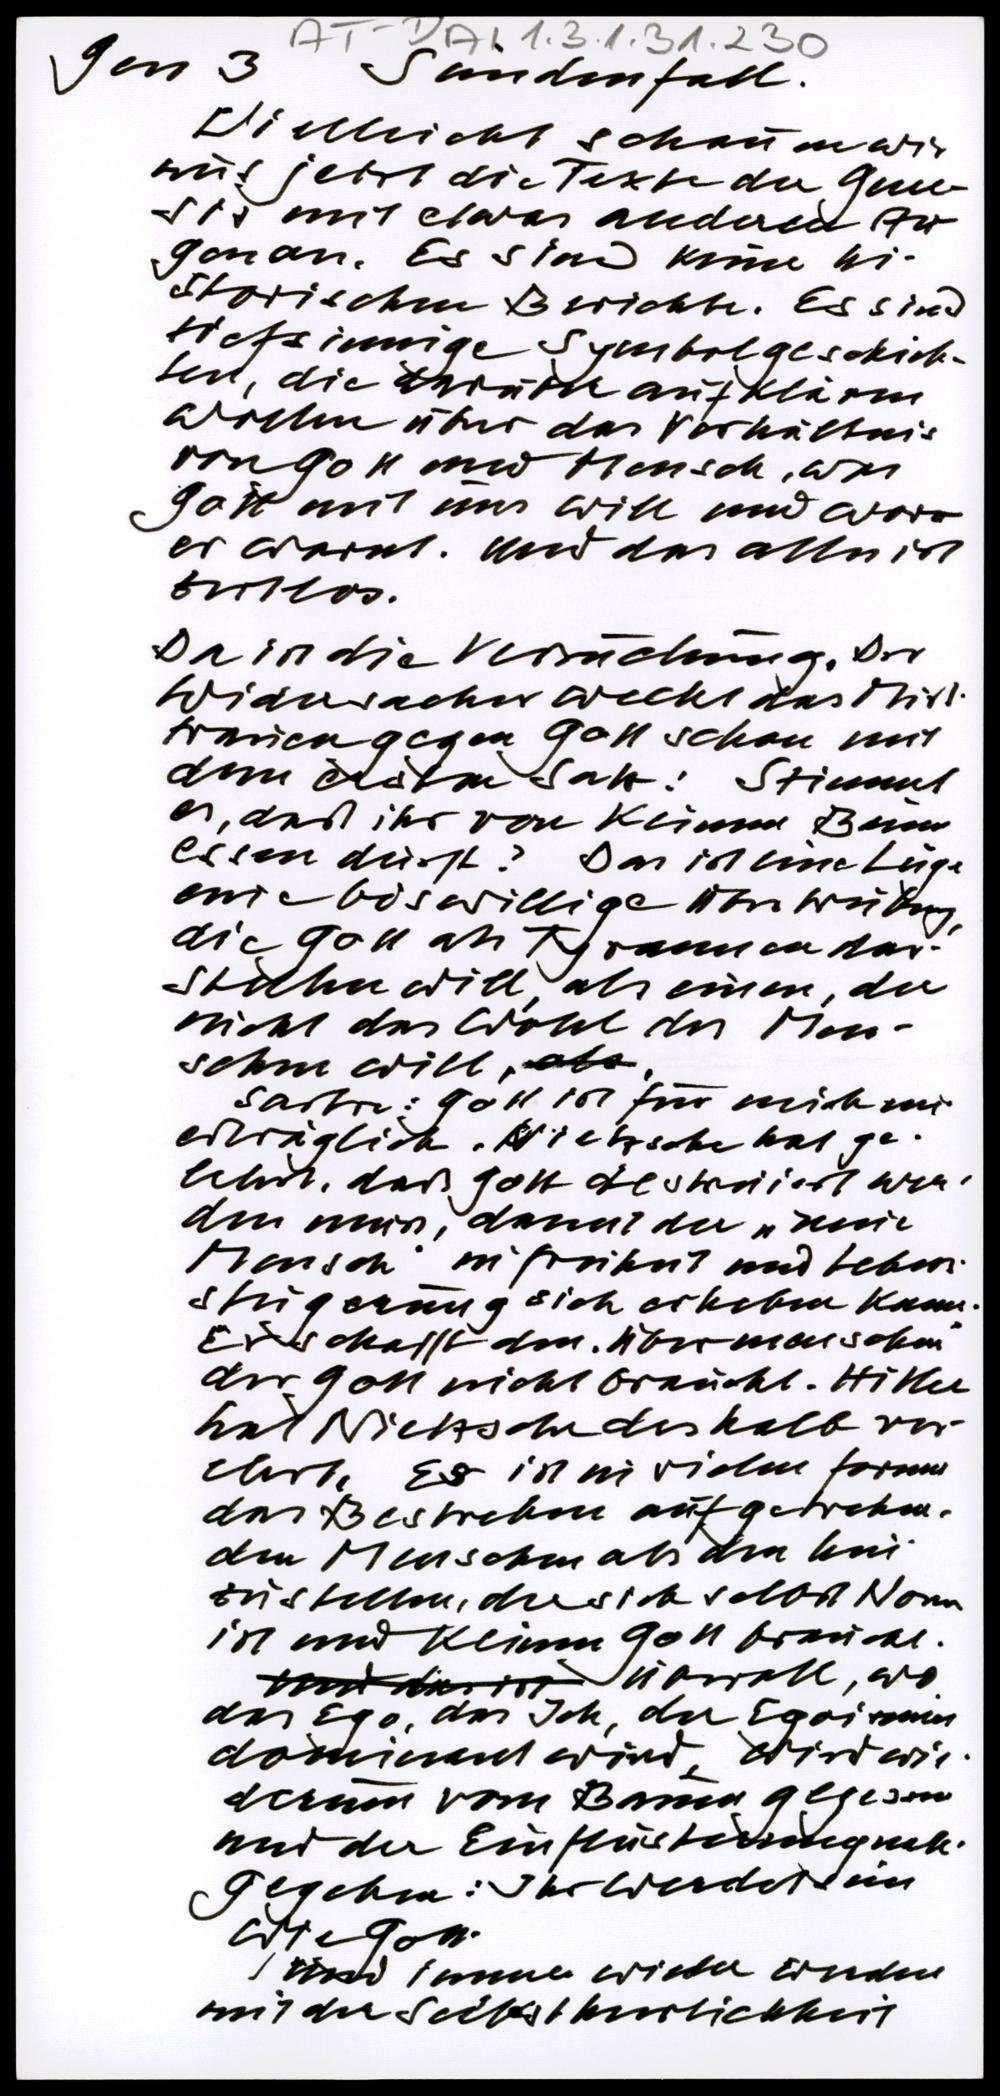 AT-DAI 1.3.1.31.230
Gen 3 Sündenfall.
Vielleicht schauen wir
uns jetzt die Texte der Gene-
sis mit etwas anderen Au
gen an. Es sind keine hi-
storischen Berichte. Es sind
tiefsinnige Symbolgeschich-
ten, die aufklären
wollen über das Verhältnis
von Gott und Mensch, was
Gott mit uns will und wovor
er warnt. Und das alles ist
zeitlos.
Da ist die Versuchung. Der
Widersacher weckt das Miß-
trauen gegen Gott schon mit
dem ersten Satz: Stimmt
es, daß ihr von keinem Baum
essen dürft? Das ist eine Lüge
eine böswillige Übertreibung,
die Gott als Tyrannen dar-
stellen will, als einen, der
nicht das Wohl des Men-
schen will, als.
Sartre: Gott ist für mich un
erträglich. Nietzsche hat ge-
lehrt, daß Gott destruiert wer-
den muss, damit der „neue
Mensch" in Freiheit und Lebens-
steigerung sich erheben kann.
Er schafft den „Übermenschen"
der Gott nicht braucht. Hitler
hat Nietzsche deshalb ver-
ehrt. Es ist in vielen Formen
das Bestreben aufgetreten,
den Menschen als den hin-
zustellen, der sich selbst Norm
ist und keinen Gott braucht.
Und das ist Überall, wo
das Ego, das Ich, der Egoismus
dominant wird, wird wie-
derum vom Baum gegessen
und der Einflüsterung nach-
gegeben: Ihr werdet sein
wie Gott.
Und immer wieder enden
mit der Selbstherrlichkeit